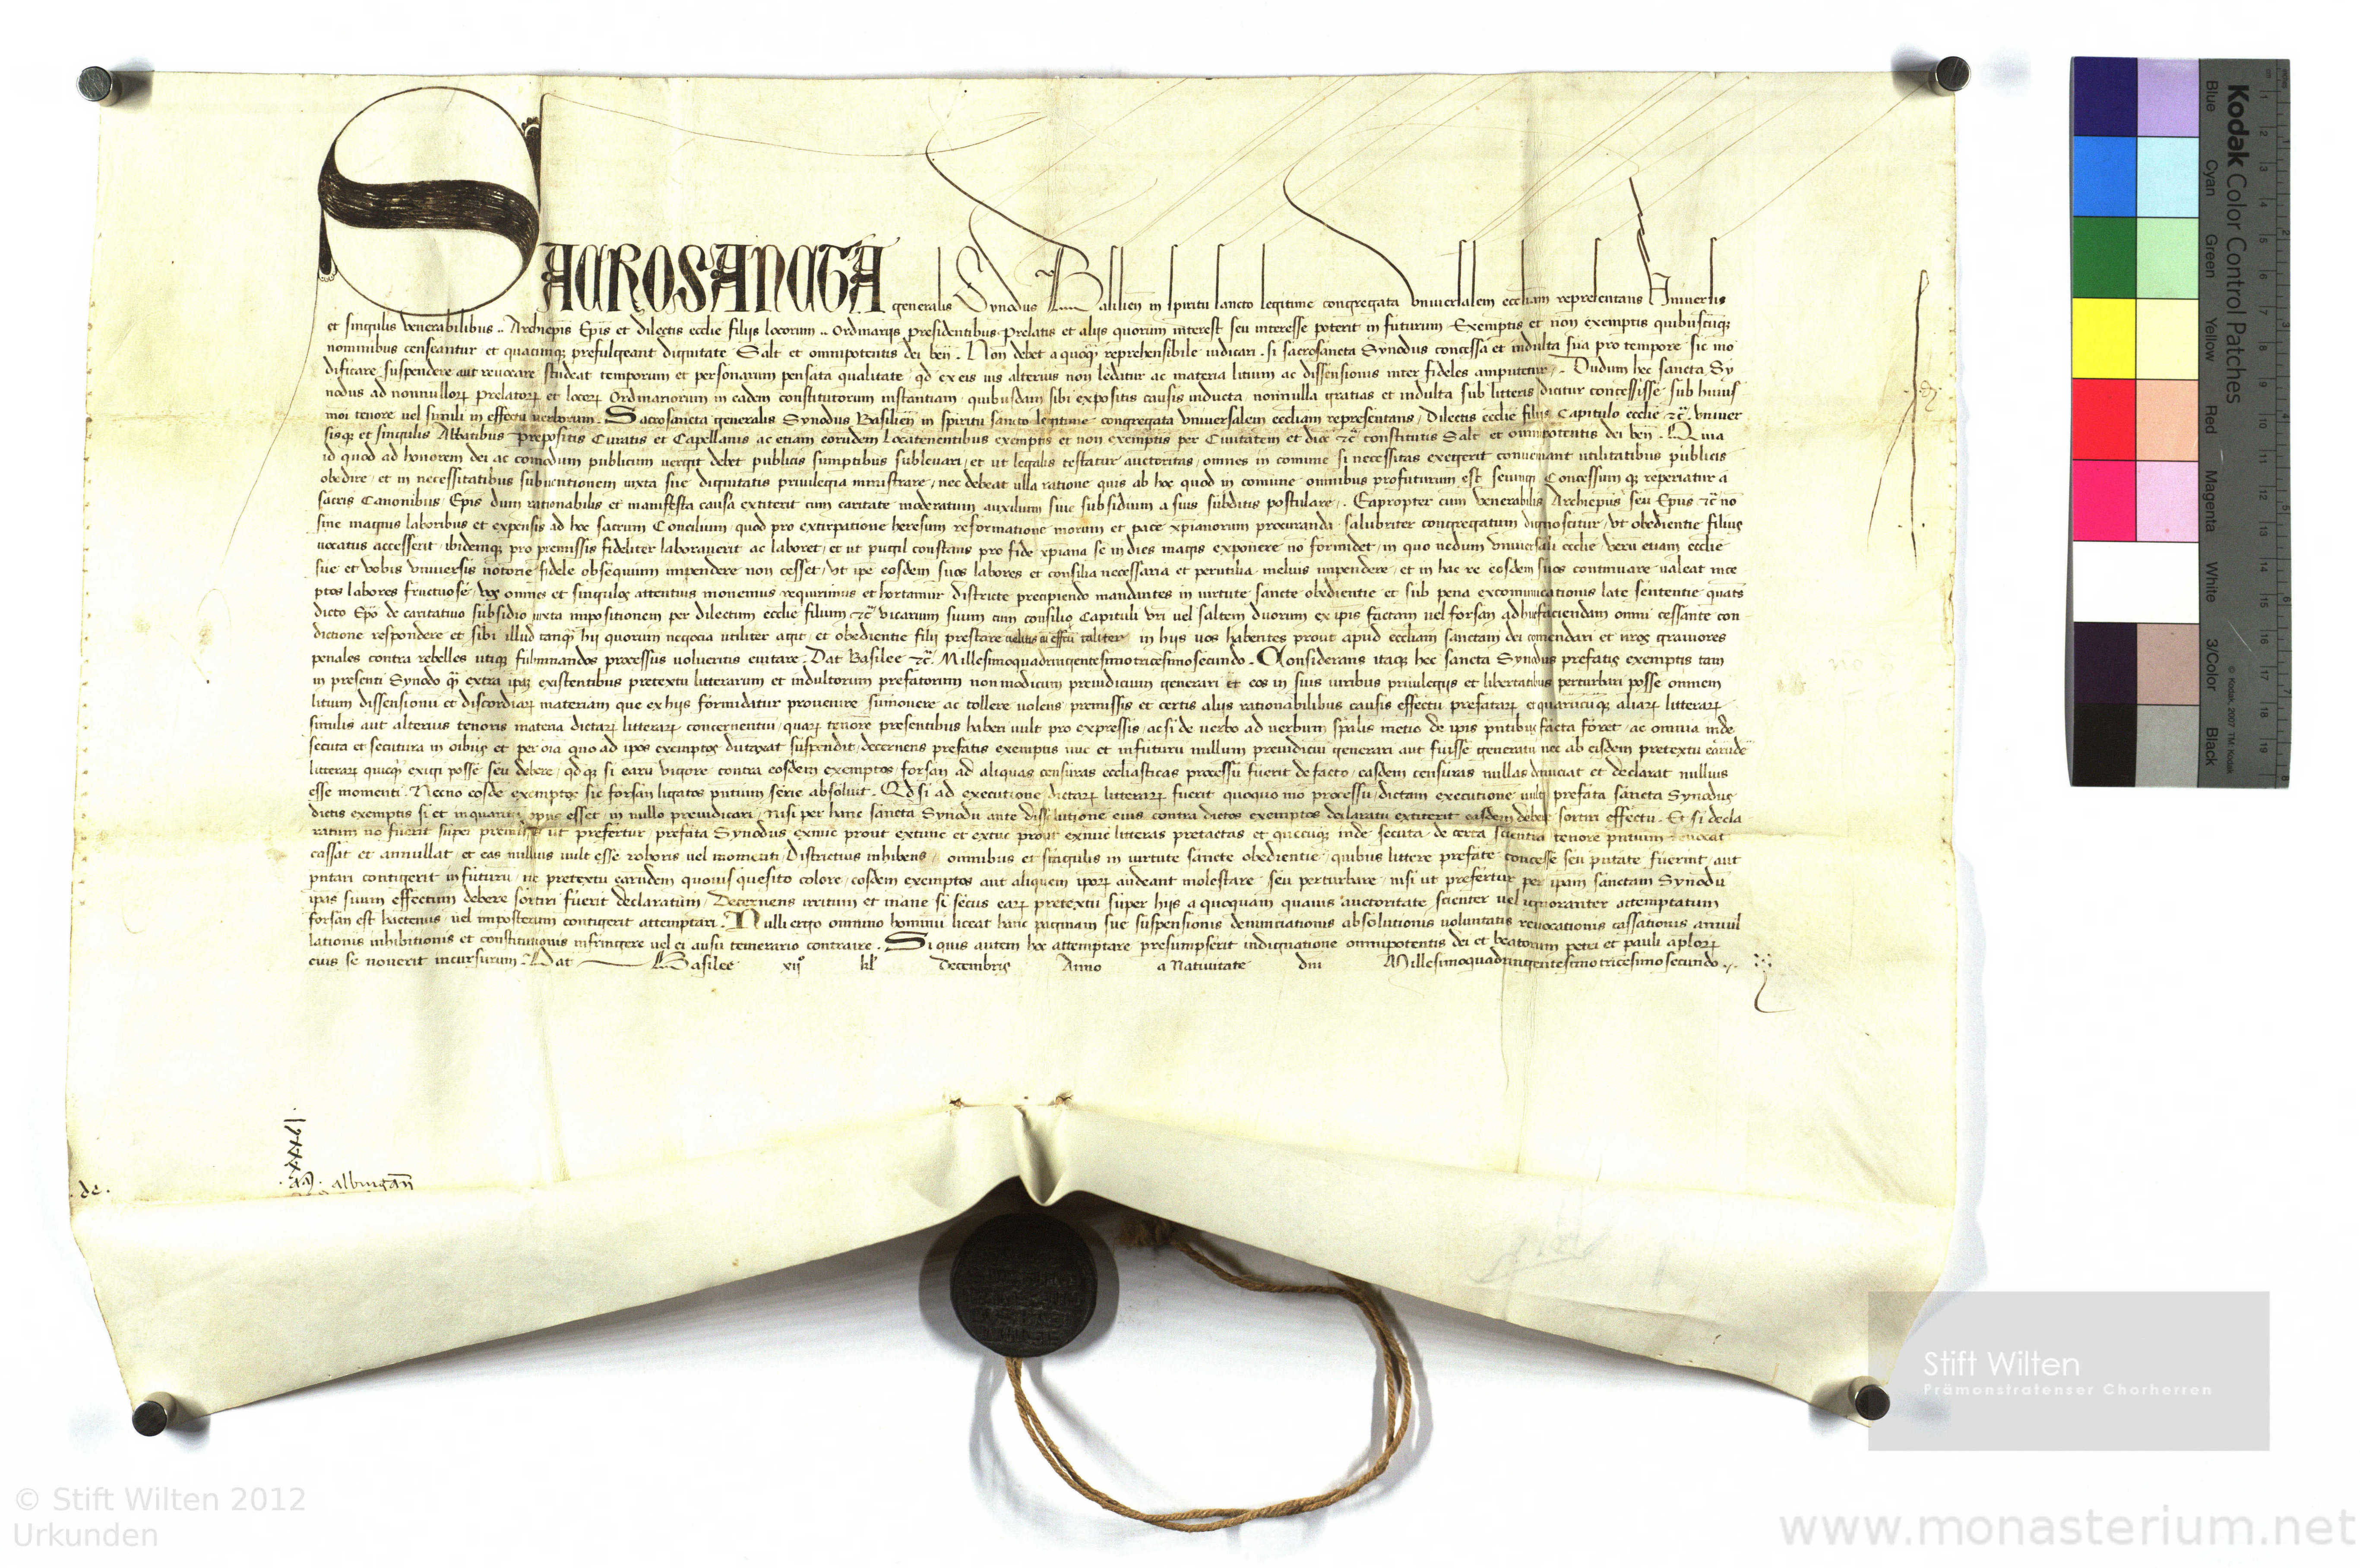 SACROSANCTA generalis Synodus Basilień in spiritu sancto legitime congregata vniuersalem eccliam representans Vniuersis
et singulis venerabilibus .. Archiepis Epis et Dilectis ecclie filijs locorum .. Ordinarijs presidentibus Prelatis et alijs quorum interest seu interesse poterit in futurum Exemptis et non exemptis quibuscūqȝ
nominibus censeantur et quacunqȝ prefulgeant dignitate Salt et omnipotentis dei beñ . Non debet a quoqȝ reprehensibile iudicari . si sacrosancta Synodus concessa et indulta sua pro tempore sic mo
dificare suspendere aut reuocare studeat temporum et personarum pensata qualitate qd ex eis ius alterius non ledatur ac materia litium ac dissensionis inter fideles amputetur . Dudum hec sancta Sy
nodus ad nonnulloꝝ prelatoꝝ et locoꝝ Ordinariorum in eadem constitutorum instantiam quibusdam sibi expositis causis inducta nonnulla gratias et indulta sub litteris dicitur concessisse sub huius
moi tenore uel simili in effectu uerborum . Sacrosancta generalis Synodus Basilień in spiritu sancto legitime congregata vniuersalem eccliam representans / Dilectis ecclie filijs Capitulo ecclie ⁊c̄ . vniuer
sisqȝ et singulis Abbatibus Prepositis Curatis et Capellanis ac etiam eorundem Locatenentibus exemptis et non exemptis per Ciuitatem et dioc̄ ⁊c̄ constitutis Salt et omnipotentis dei beñ . Quia
id quod ad honorem dei ac comodum publicum uergit debet publicis sumptibus subleuari / et ut legalis testatur auctoritas / omnes in comune si necessitas exegerit conueniant utilitatibus publicis
obedire / et in necessitatibus subuentionem iuxta sue dignitatis priuilegia ministrare / nec debeat ulla ratione quis ab hoc quod in comune omnibus profuturum est seiungi Concessum qȝ reperiatur a
sacris Canonibus Epis dum rationabilis et manifesta causa extiterit cum caritate moderatum auxilium siue subsidium a suis subditis postulare . Eapropter cum venerabilis Archiepus seu Epus ⁊c̄ nō
sine magnis laboribus et expensis ad hoc sacrum Concilium / quod pro extirpatione heresum reformatione morum et pace xpianorum procuranda salubriter congregatum dignoscitur / vt obedientie filius
uocatus accesserit / ibidemqȝ pro premissis fideliter laborauerit ac laboret / et ut pugil constans pro fide xpiana se in dies magis exponere nō formidet / in quo nedum vniuersali ecclie verū etiam ecclie
sue et vobis vniuersis notorie fidele obsequium impendere non cesset / vt ipe eosdem suos labores et consilia necessaria et perutilia melius impendere / et in hac re eosdem suos continuare ualeat ince
ptos labores fructuose / vos omnes et singulos attentius monemus requirimus et hortamur districte precipiendo mandantes in uirtute sancte obedientie et sub pena excommunicationis late sententie quatȝ
dicto Epo de caritatiuo subsidio iuxta impositionem per dilectum ecclie filium ⁊c̄ vicarium suum cum consilio Capituli vri vel saltem duorum ex ipis factam uel forsan adhuc faciendam omni cessante con
dictione respondere et sibi illud tanqȝ hij quorum negocia utiliter agit / et obedientie filij prestare uelitis in effectu taliter in hijs uos habentes prout apud eccliam sanctam dei comendari et nros grauiores
penales contra rebelles utiqȝ fulminandos processus volueritis euitare . Dat Basilee ⁊c̄ . Millesimoquadringentesimotricesimosecundo . Considerans itaqȝ hec sancta Synodus prefatis exemptis tam
in presenti Synodo qȝ extra ipam existentibus pretextu litterarum et indultorum prefatorum non modicum preiudicium generari et eos in suis iuribus priuilegijs et libertatibus perturbari posse omnem
litium dissensionū et discordiaꝝ materiam que ex hijs formidatur prouenire sumouere ac tollere volens premissis et certis alijs rationabilibus causis effectū prefataꝝ et quarūcūqȝ aliaꝝ litteraꝝ
similis aut alterius tenoris materia dictaꝝ litteraꝝ concernentiū / quaꝝ tenorē presentibus haberi uult pro expressis / ac si de uerbo ad uerbum spālis mētio de ipis pntibus facta foret / ac omnia inde
secuta et secutura in oibus et per oia quo ad ipos exemptos dūtaxat suspendit / decernens prefatis exemptis nūc et infuturū nullum preiudiciū generari aut fuisse generatū nec ab eisdem pretextu earūdē
litteraꝝ quicqȝ exigi posse seu debere / qd qȝ si earū vigore contra eosdem exemptos forsan ad aliquas censuras ecclīasticas processū fuerit de facto / easdem censuras nullas denūciat et declarat nullius
esse momenti . Necnō eosdē exemptos sic forsan ligatos pntium serie absoluit . Qd si ad executionē dictaꝝ litteraꝝ fuerit quoquo mō processū / dictam executionē uult prefata sancta Synodus
dictis exemptis si et inquantū opus esset / in nullo preiudicari / nisi per hanc sanctā Synodū ante dissolutionē eius contra dictos exemptos declaratū extiterit easdem debere sortiri effectū . Et si decla
ratum nō fuerit super premissis ut prefertur / prefata Synodus exnūc prout extunc et extūc prout exnūc litteras pretactas et quecūqȝ inde secuta de certa scientia tenore pntium reuocat
cassat et annullat / et eas nullius uult esse roboris uel momenti / Districtius inhibens / omnibus et singulis in uirtute sancte obedientie / quibus littere prefate concesse seu pntate fuerint / aut
pntari contigerit infuturū / ne pretextu earūdem quouis quesito colore / eosdem exemptos aut aliquem ipoꝝ audeant molestare seu perturbare / nisi ut prefertur per ipam sanctam Synodū
ipas suum effectum debere sortiri fuerit declaratum / Decernens irritum et inane si secus eaꝝ pretextu super hijs a quoquam quauis auctoritate scienter uel ignoranter attemptatum
forsan est hactenus / uel imposterum contigerit attemptari . Nulli ergo omnino hominū liceat hanc paginam sue suspensionis denunciationis absolutionis voluntatis reuocationis cassationis annul
lationis inhibitionis et constitutionis infringere uel ei ausu temerario contraire . Si quis autem hoc attemptare presumpserit indignatione omnipotentis dei et beatorum petri et pauli aploꝝ
eius se nouerit incursurum . Dat Basilee xijº kl' Decembris Anno a Natiuitate dni Millesimoquadringentesimotricesimosecundo .
de.
albingań
Kodak Color Control Patches
Blue Cyan Green Yellow Red Magenta White 3/Color Black
© Kodak, 2007 TM: Kodak
Stift Wilten
Prämonstratenser Chorherren
© Stift Wilten 2012
Urkunden
www.monasterium.net